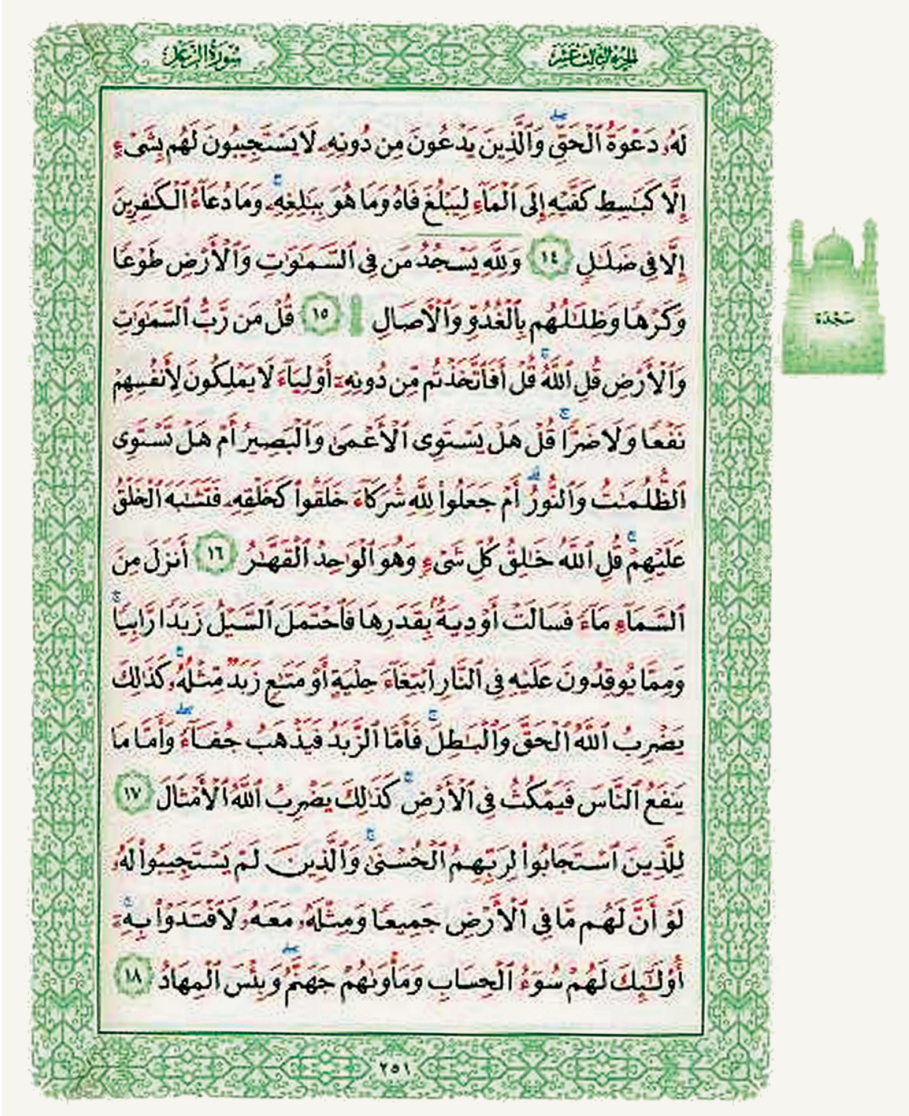 الجزء الثالث عشر
سورة الرعد
لَهُۥ دَعْوَةُ ٱلْحَقِّ ۖ وَٱلَّذِينَ يَدْعُونَ مِن دُونِهِۦ لَا يَسْتَجِيبُونَ لَهُم بِشَىْءٍ
إِلَّا كَبَـٰسِطِ كَفَّيْهِ إِلَى ٱلْمَآءِ لِيَبْلُغَ فَاهُ وَمَا هُوَ بِبَـٰلِغِهِۦ ۚ وَمَا دُعَآءُ ٱلْكَـٰفِرِينَ
إِلَّا فِى ضَلَـٰلٍ ١٤ وَلِلَّهِ يَسْجُدُ مَن فِى ٱلسَّمَـٰوَٰتِ وَٱلْأَرْضِ طَوْعًا
وَكَرْهًا وَظِلَـٰلُهُم بِٱلْغُدُوِّ وَٱلْـَٔاصَالِ ١٥ قُلْ مَن رَّبُّ ٱلسَّمَـٰوَٰتِ
سجدة
وَٱلْأَرْضِ قُلِ ٱللَّهُ ۚ قُلْ أَفَٱتَّخَذْتُم مِّن دُونِهِۦٓ أَوْلِيَآءَ لَا يَمْلِكُونَ لِأَنفُسِهِمْ
نَفْعًا وَلَا ضَرًّا ۚ قُلْ هَلْ يَسْتَوِى ٱلْأَعْمَىٰ وَٱلْبَصِيرُ أَمْ هَلْ تَسْتَوِى
ٱلظُّلُمَـٰتُ وَٱلنُّورُ ۗ أَمْ جَعَلُوا۟ لِلَّهِ شُرَكَآءَ خَلَقُوا۟ كَخَلْقِهِۦ فَتَشَـٰبَهَ ٱلْخَلْقُ
عَلَيْهِمْ ۚ قُلِ ٱللَّهُ خَـٰلِقُ كُلِّ شَىْءٍ وَهُوَ ٱلْوَٰحِدُ ٱلْقَهَّـٰرُ ١٦ أَنزَلَ مِنَ
ٱلسَّمَآءِ مَآءً فَسَالَتْ أَوْدِيَةٌۢ بِقَدَرِهَا فَٱحْتَمَلَ ٱلسَّيْلُ زَبَدًا رَّابِيًا ۚ
وَمِمَّا يُوقِدُونَ عَلَيْهِ فِى ٱلنَّارِ ٱبْتِغَآءَ حِلْيَةٍ أَوْ مَتَـٰعٍ زَبَدٌ مِّثْلُهُۥ ۚ كَذَٰلِكَ
يَضْرِبُ ٱللَّهُ ٱلْحَقَّ وَٱلْبَـٰطِلَ ۚ فَأَمَّا ٱلزَّبَدُ فَيَذْهَبُ جُفَآءً ۖ وَأَمَّا مَا
يَنفَعُ ٱلنَّاسَ فَيَمْكُثُ فِى ٱلْأَرْضِ ۚ كَذَٰلِكَ يَضْرِبُ ٱللَّهُ ٱلْأَمْثَالَ ١٧
لِلَّذِينَ ٱسْتَجَابُوا۟ لِرَبِّهِمُ ٱلْحُسْنَىٰ ۚ وَٱلَّذِينَ لَمْ يَسْتَجِيبُوا۟ لَهُۥ
لَوْ أَنَّ لَهُم مَّا فِى ٱلْأَرْضِ جَمِيعًا وَمِثْلَهُۥ مَعَهُۥ لَٱفْتَدَوْا۟ بِهِۦٓ ۚ
أُو۟لَـٰٓئِكَ لَهُمْ سُوٓءُ ٱلْحِسَابِ وَمَأْوَىٰهُمْ جَهَنَّمُ ۖ وَبِئْسَ ٱلْمِهَادُ ١٨
٢٥١